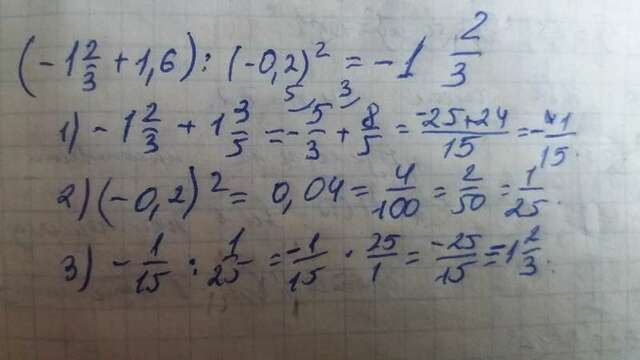 (-1 2/3 + 1,6) : (-0,2)² = -1 2/3
1) -1 2/3 + 1 3/5 = -5/3 + 8/5 = -25+24/15 = -1/15.
2) (-0,2)² = 0,04 = 4/100 = 2/50 = 1/25.
3) -1/15 : 1/25 = -1/15 · 25/1 = -25/15 = -1 2/3.